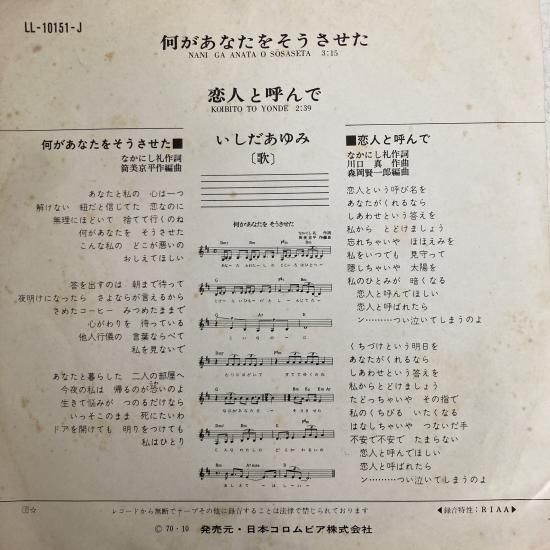 LL-10151-J
何があなたをそうさせた
NANI GA ANATA O SŌSASETA 3:15
恋人と呼んで
KOIBITO TO YONDE 2:39
何があなたをそうさせた■
なかにし礼作詞
筒美京平作編曲
あなたと私の 心は一つ
解けない 紐だと信じてた 恋なのに
無理にほどいて 捨てて行くのね
何があなたを そうさせた
こんな私の どこが悪いの
おしえてほしい
答を出すのは 朝まで待って
夜明けになったら さよならが言えるから
さめたコーヒー みつめたままで
心がわりを 待っている
他人行儀の 言葉ならべて
私を見ないで
あなたと暮らした 二人の部屋へ
今夜の私は 帰るのが恐いのよ
生きて悩みが つのるだけなら
いっそこのまま 死にたいわ
ドアを開けても 明りをつけても
私はひとり
いしだあゆみ
〔歌〕
何があなたを そうさせた
なかにし礼 作詞
筒美京平 作編曲
■恋人と呼んで
なかにし礼作詞
川口 真 作曲
森岡賢一郎編曲
恋人という呼び名を
あなたがくれるなら
しあわせという答えを
私から とどけましょう
忘れちゃいや ほほえみを
私をいつも 見守って
隠しちゃいや 太陽を
私のひとみが 暗くなる
恋人と呼んでほしい
恋人と呼ばれたら
ン………つい泣いてしまうのよ
くちづけという明日を
あなたがくれるなら
しあわせという答えを
私からとどけましょう
たどっちゃいや その指で
私のくちびる いたくなる
はなしちゃいや つないだ手
不安で不安で たまらない
恋人と呼んでほしい
恋人と呼ばれたら
ン………つい泣いてしまうのよ
レコードから無断でテープその他に録音することは法律で禁じられております
◀録音特性：RIAA▶
Ⓒ 70・10 発売元・日本コロムビア株式会社